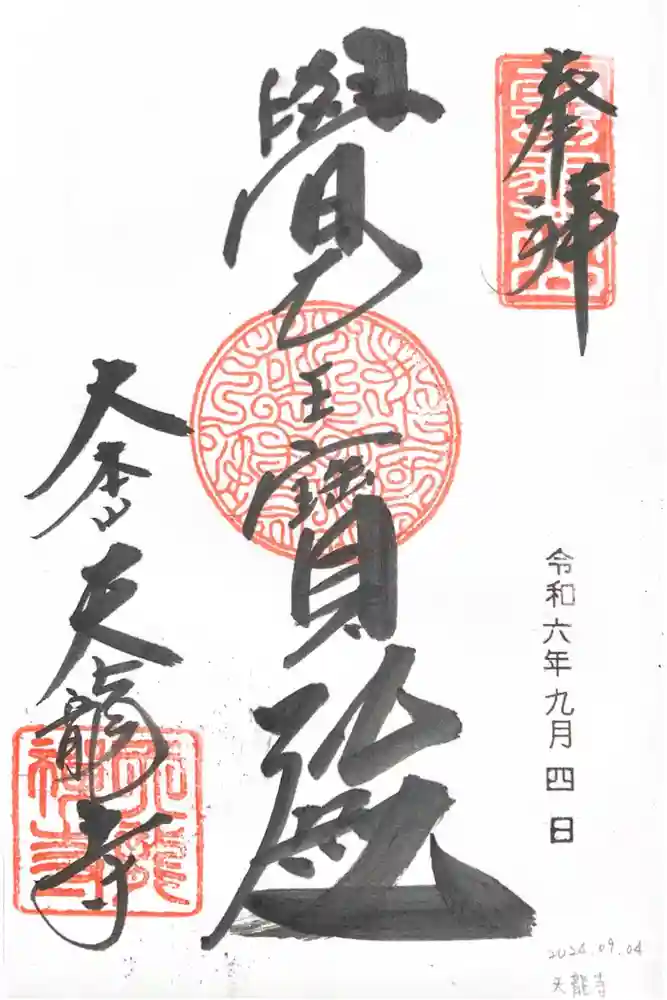 奉拝
覺王寶殿
大本山天龍寺
令和六年九月四日
2024.09.04
天龍寺